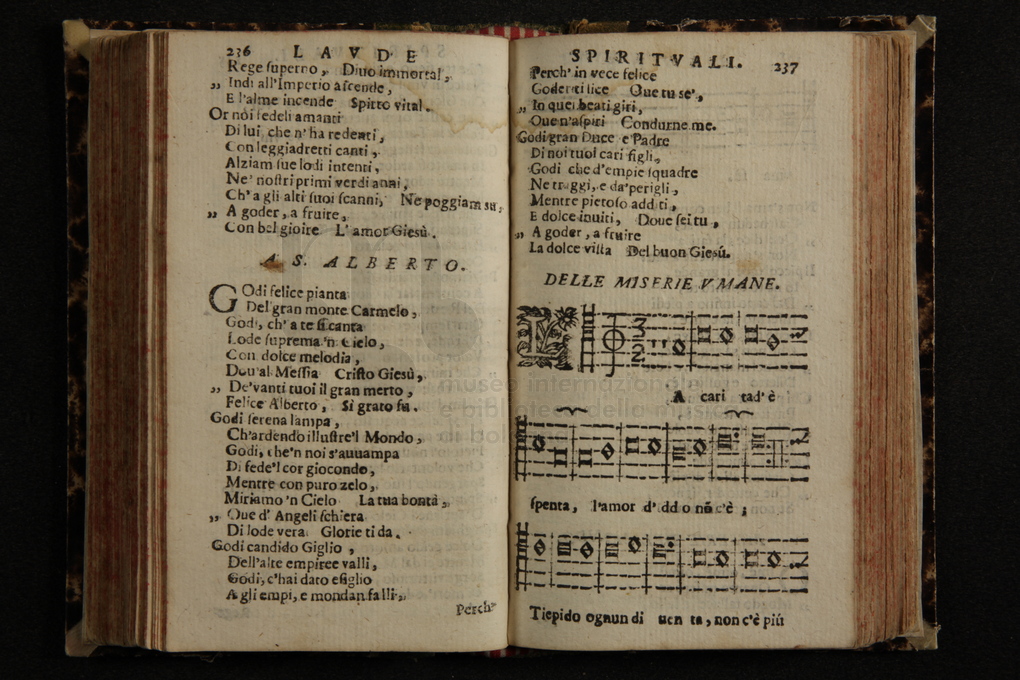 236 LAVDE
Rege ſuperno, Diuo immortal,
„ Indi all'Imperio aſcende,
E l'alme incende Spirto vital.
Or noi fedeli amanti
Di lui, che n'ha redenti,
Con leggiadretti canti,
Alziam ſue lodi intenti,
Ne' noſtri primi verdi anni,
Ch'a gli alti ſuoi ſcanni, Ne poggiam su,
„ A goder, a fruire,
Con bel gioire L'amor Giesù.
A S. ALBERTO.
GOdi felice pianta
Del gran monte Carmelo,
Godi, ch'a te ſi canta
Lode ſuprema 'n Cielo,
Con dolce melodia,
Dou'al Meſſia Criſto Giesù,
„ De'vanti tuoi il gran merto,
Felice Alberto, Sì grato fu.
Godi ſerena lampa,
Ch'ardendo illuſtre'l Mondo,
Godi, che'n noi s'auuampa
Di fede'l cor giocondo,
Mentre con puro zelo,
Miriamo 'n Cielo La tua bontà,
„ Oue d'Angeli ſchiera
Di lode vera Glorie ti da.
Godi candido Giglio,
Dell'alte empiree valli,
Godi, c'hai dato eſiglio
A gli empi, e mondan falli,
Perch'
SPIRITVALI. 237
Perch' in vece felice
Goder ti lice Oue tu se',
„ In quei beati giri,
Oue n'aſpiri Condurne me.
Godi gran Duce e Padre
Di noi tuoi cari figli,
Godi che d'empie ſquadre
Ne traggi, e da'perigli,
Mentre pietoſo additi,
E dolce inuiti, Doue ſei tu,
„ A goder, a fruire
La dolce viſta Del buon Giesú.
DELLE MISERIE VMANE.
L A cari tad' è
ſpenta, l'amor d'iddio nõ c'è ;
Tiepido ognun di uen ta, non c'è piú
museo internazionale
e biblioteca della musica
di bologna